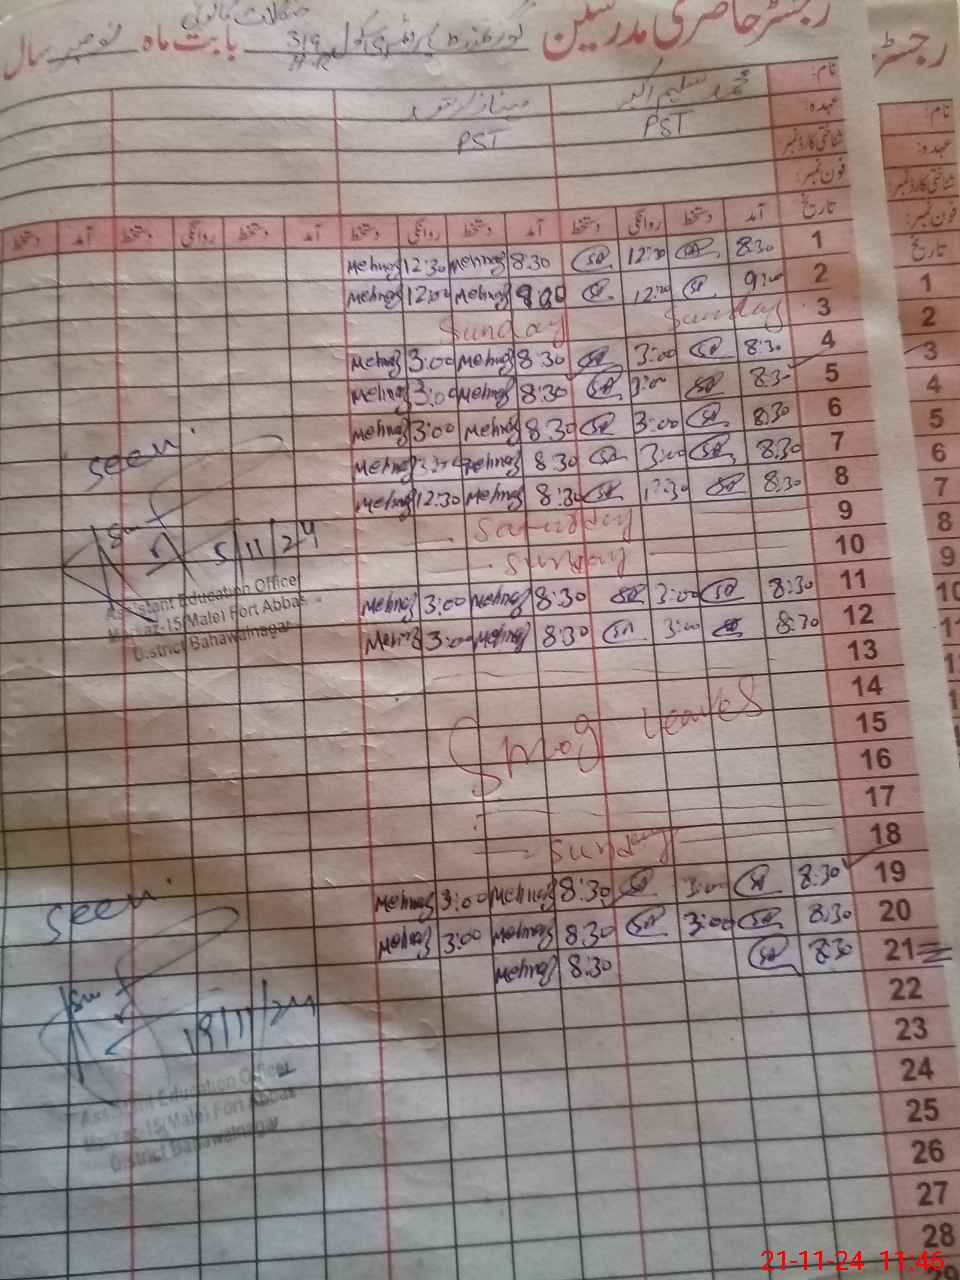 رجسٹر حاضری مدرسین گورنمنٹ پرائمری سکول 319 H.R بابت ماہ نومبر سال
رجسٹر
نام: محمد سلیم اکبر
عہدہ: PST PST
شناختی کارڈ نمبر:
فون نمبر:
تاریخ آمد دستخط روانگی دستخط آمد دستخط روانگی دستخط آمد دستخط روانگی دستخط آمد دستخط
1 8:30 SA 12:30 SA 8:30 Mehnaz 12:30 Mehnaz
2 9:00 SA 12:00 SA 9:00 Mehnaz 12:00 Mehnaz
3 Sunday Sunday
4 8:30 SA 3:00 SA 8:30 Mehnaz 3:00 Mehnaz
5 8:30 SA 3:00 SA 8:30 Mehnaz 3:00 Mehnaz
6 8:30 SA 3:00 SA 8:30 Mehnaz 3:00 Mehnaz
7 8:30 SA 3:00 SA 8:30 Mehnaz 3:00 Mehnaz
8 8:30 SA 12:30 SA 8:30 Mehnaz 12:30 Mehnaz
9 Saturday
10 Sunday
11 8:30 SA 3:00 SA 8:30 Mehnaz 3:00 Mehnaz
12 8:30 SA 3:00 SA 8:30 Mehnaz 3:00 Mehnaz
13
14
15 Smog leaves
16
17
18 Sunday
19 8:30 SA 3:00 SA 8:30 Mehnaz 3:00 Mehnaz
20 8:30 SA 3:00 SA 8:30 Mehnaz 3:00 Mehnaz
21 8:30 SA 8:30 Mehnaz
22
23
24
25
26
27
28
Seen
5/11/24
Assistant Education Officer
Markaz-15(Male) Fort Abbas
District Bahawalnagar
Seen
19/11/24
Assistant Education Officer
Markaz-15(Male) Fort Abbas
District Bahawalnagar
نام:
عہدہ:
شناختی کارڈ نمبر:
فون نمبر:
تاریخ
1
2
3
4
5
6
7
8
9
10
21-11-24 11:46